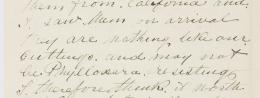 them from California and
I saw them on arrival
they are nothing like our
Cuttings, and may not
be Phylloxera resisting
I therefore think it worth